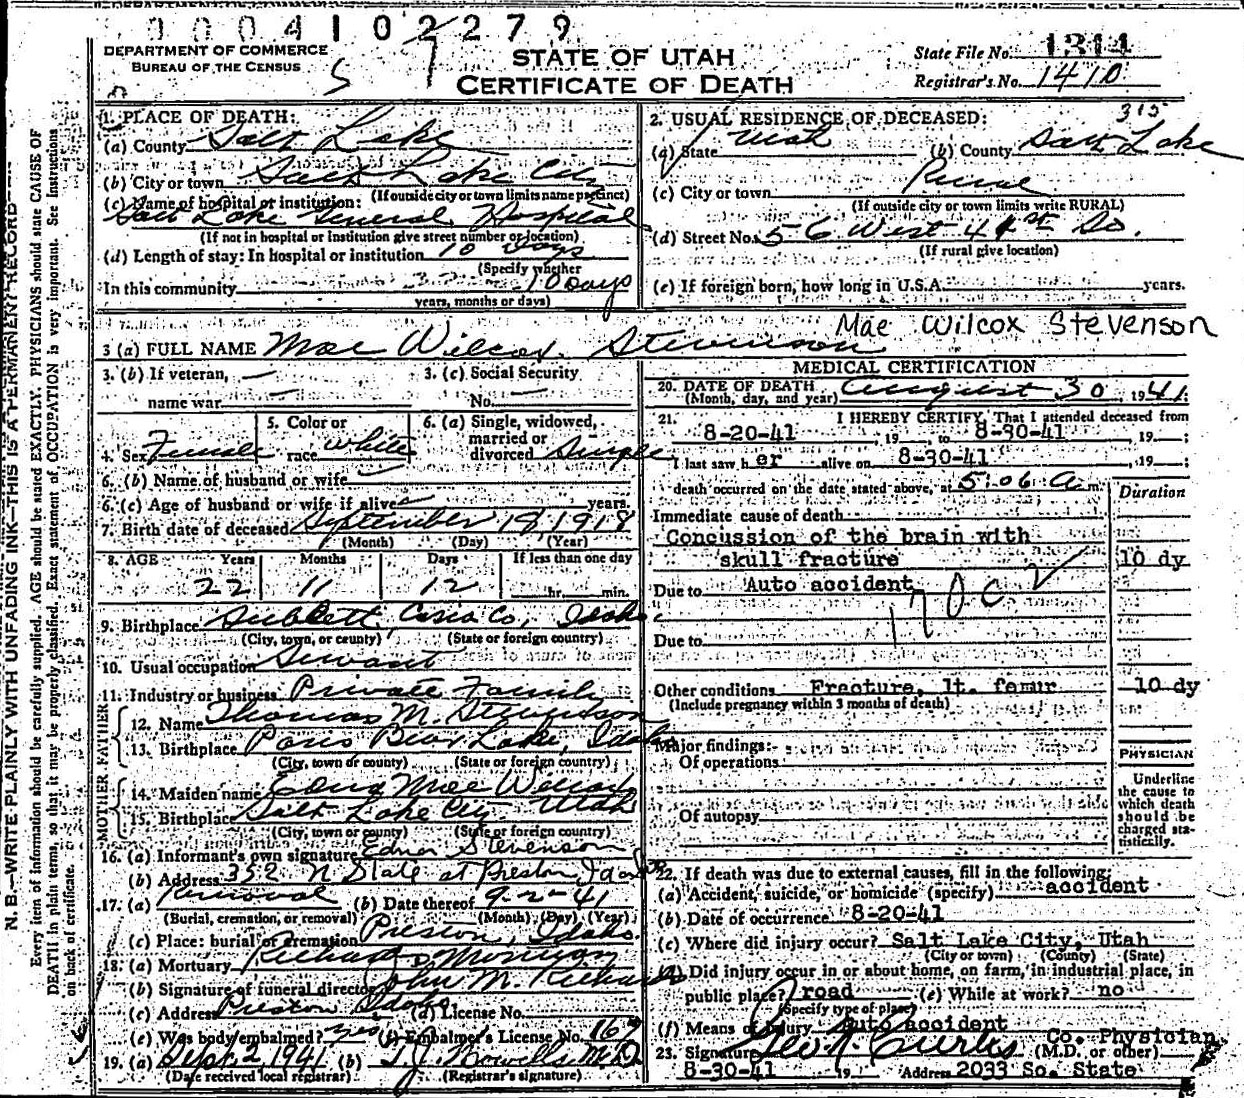 0004102279
DEPARTMENT OF COMMERCE
BUREAU OF THE CENSUS
S
STATE OF UTAH
CERTIFICATE OF DEATH
State File No. 1314
Registrar's No. 1410
N. B.—WRITE PLAINLY WITH UNFADING INK—THIS IS A PERMANENT RECORD
Every item of information should be carefully supplied. AGE should be stated EXACTLY. PHYSICIANS should state CAUSE OF
DEATH in plain terms, so that it may be properly classified. Exact statement of OCCUPATION is very important. See instructions
on back of certificate.
1. PLACE OF DEATH:
(a) County Salt Lake
(b) City or town Salt Lake City
(If outside city or town limits name precinct)
(c) Name of hospital or institution:
Salt Lake General Hospital
(If not in hospital or institution give street number or location)
(d) Length of stay: In hospital or institution 10 Days
(Specify whether
In this community 10 Days
years, months or days)
2. USUAL RESIDENCE OF DECEASED: 315
(a) State Utah (b) County Salt Lake
(c) City or town Rural
(If outside city or town limits write RURAL)
(d) Street No. 56 West 44th So.
(If rural give location)
(e) If foreign born, how long in U.S.A. years.
Mae Wilcox Stevenson
3 (a) FULL NAME Mae Wilcox Stevenson
3. (b) If veteran, —
name war —
3. (c) Social Security
No. —
4. Sex Female
5. Color or
race white
6. (a) Single, widowed,
married or
divorced Single
6. (b) Name of husband or wife
6. (c) Age of husband or wife if alive years.
7. Birth date of deceased September 18, 1918
(Month) (Day) (Year)
8. AGE Years Months Days If less than one day
22 11 12 hr. min.
9. Birthplace Sublett, Casia Co, Idaho
(City, town, or county) (State or foreign country)
10. Usual occupation Servant
11. Industry or business Private Family
FATHER
12. Name Thomas M. Stevenson
13. Birthplace Paris Bear Lake, Idaho
(City, town or county) (State or foreign country)
MOTHER
14. Maiden name Edna Mae Wilcox
15. Birthplace Salt Lake City Utah
(City, town or county) (State or foreign country)
16. (a) Informant's own signature Edna Stevenson
(b) Address 352 N State at Preston, Idaho
17. (a) Removal (b) Date thereof 9-2-41
(Burial, cremation, or removal) (Month) (Day) (Year)
(c) Place: burial or cremation Preston, Idaho.
18. (a) Mortuary
(b) Signature of funeral director John M.
(c) Address Preston Idaho (d) License No.
(e) Was body embalmed? yes (f) Embalmer's License No. 167
19. (a) Sept. 2 1941 (b) T. J. Howells M.D
(Date received local registrar) (Registrar's signature)
MEDICAL CERTIFICATION
20. DATE OF DEATH August 30 1941
(Month, day, and year)
21. I HEREBY CERTIFY, That I attended deceased from
8-20-41, 19 , to 8-30-41, 19 ;
I last saw her alive on 8-30-41, 19 ;
death occurred on the date stated above, at 5:06 a m.
Duration
Immediate cause of death
Concussion of the brain with
skull fracture 10 dy
Due to Auto accident
170c
Due to
Other conditions Fracture, lt. femur 10 dy
(Include pregnancy within 3 months of death)
Major findings:
Of operations
Of autopsy
PHYSICIAN
Underline
the cause to
which death
should be
charged sta-
tistically.
22. If death was due to external causes, fill in the following:
(a) Accident, suicide, or homicide (specify) accident
(b) Date of occurrence 8-20-41
(c) Where did injury occur? Salt Lake City, Utah
(City or town) (County) (State)
(d) Did injury occur in or about home, on farm, in industrial place, in
public place? road (e) While at work? no
(Specify type of place)
(f) Means of injury Auto accident
Co. Physician
23. Signature Geo. N. Curtis (M.D. or other)
8-30-41 19 Address 2033 So. State